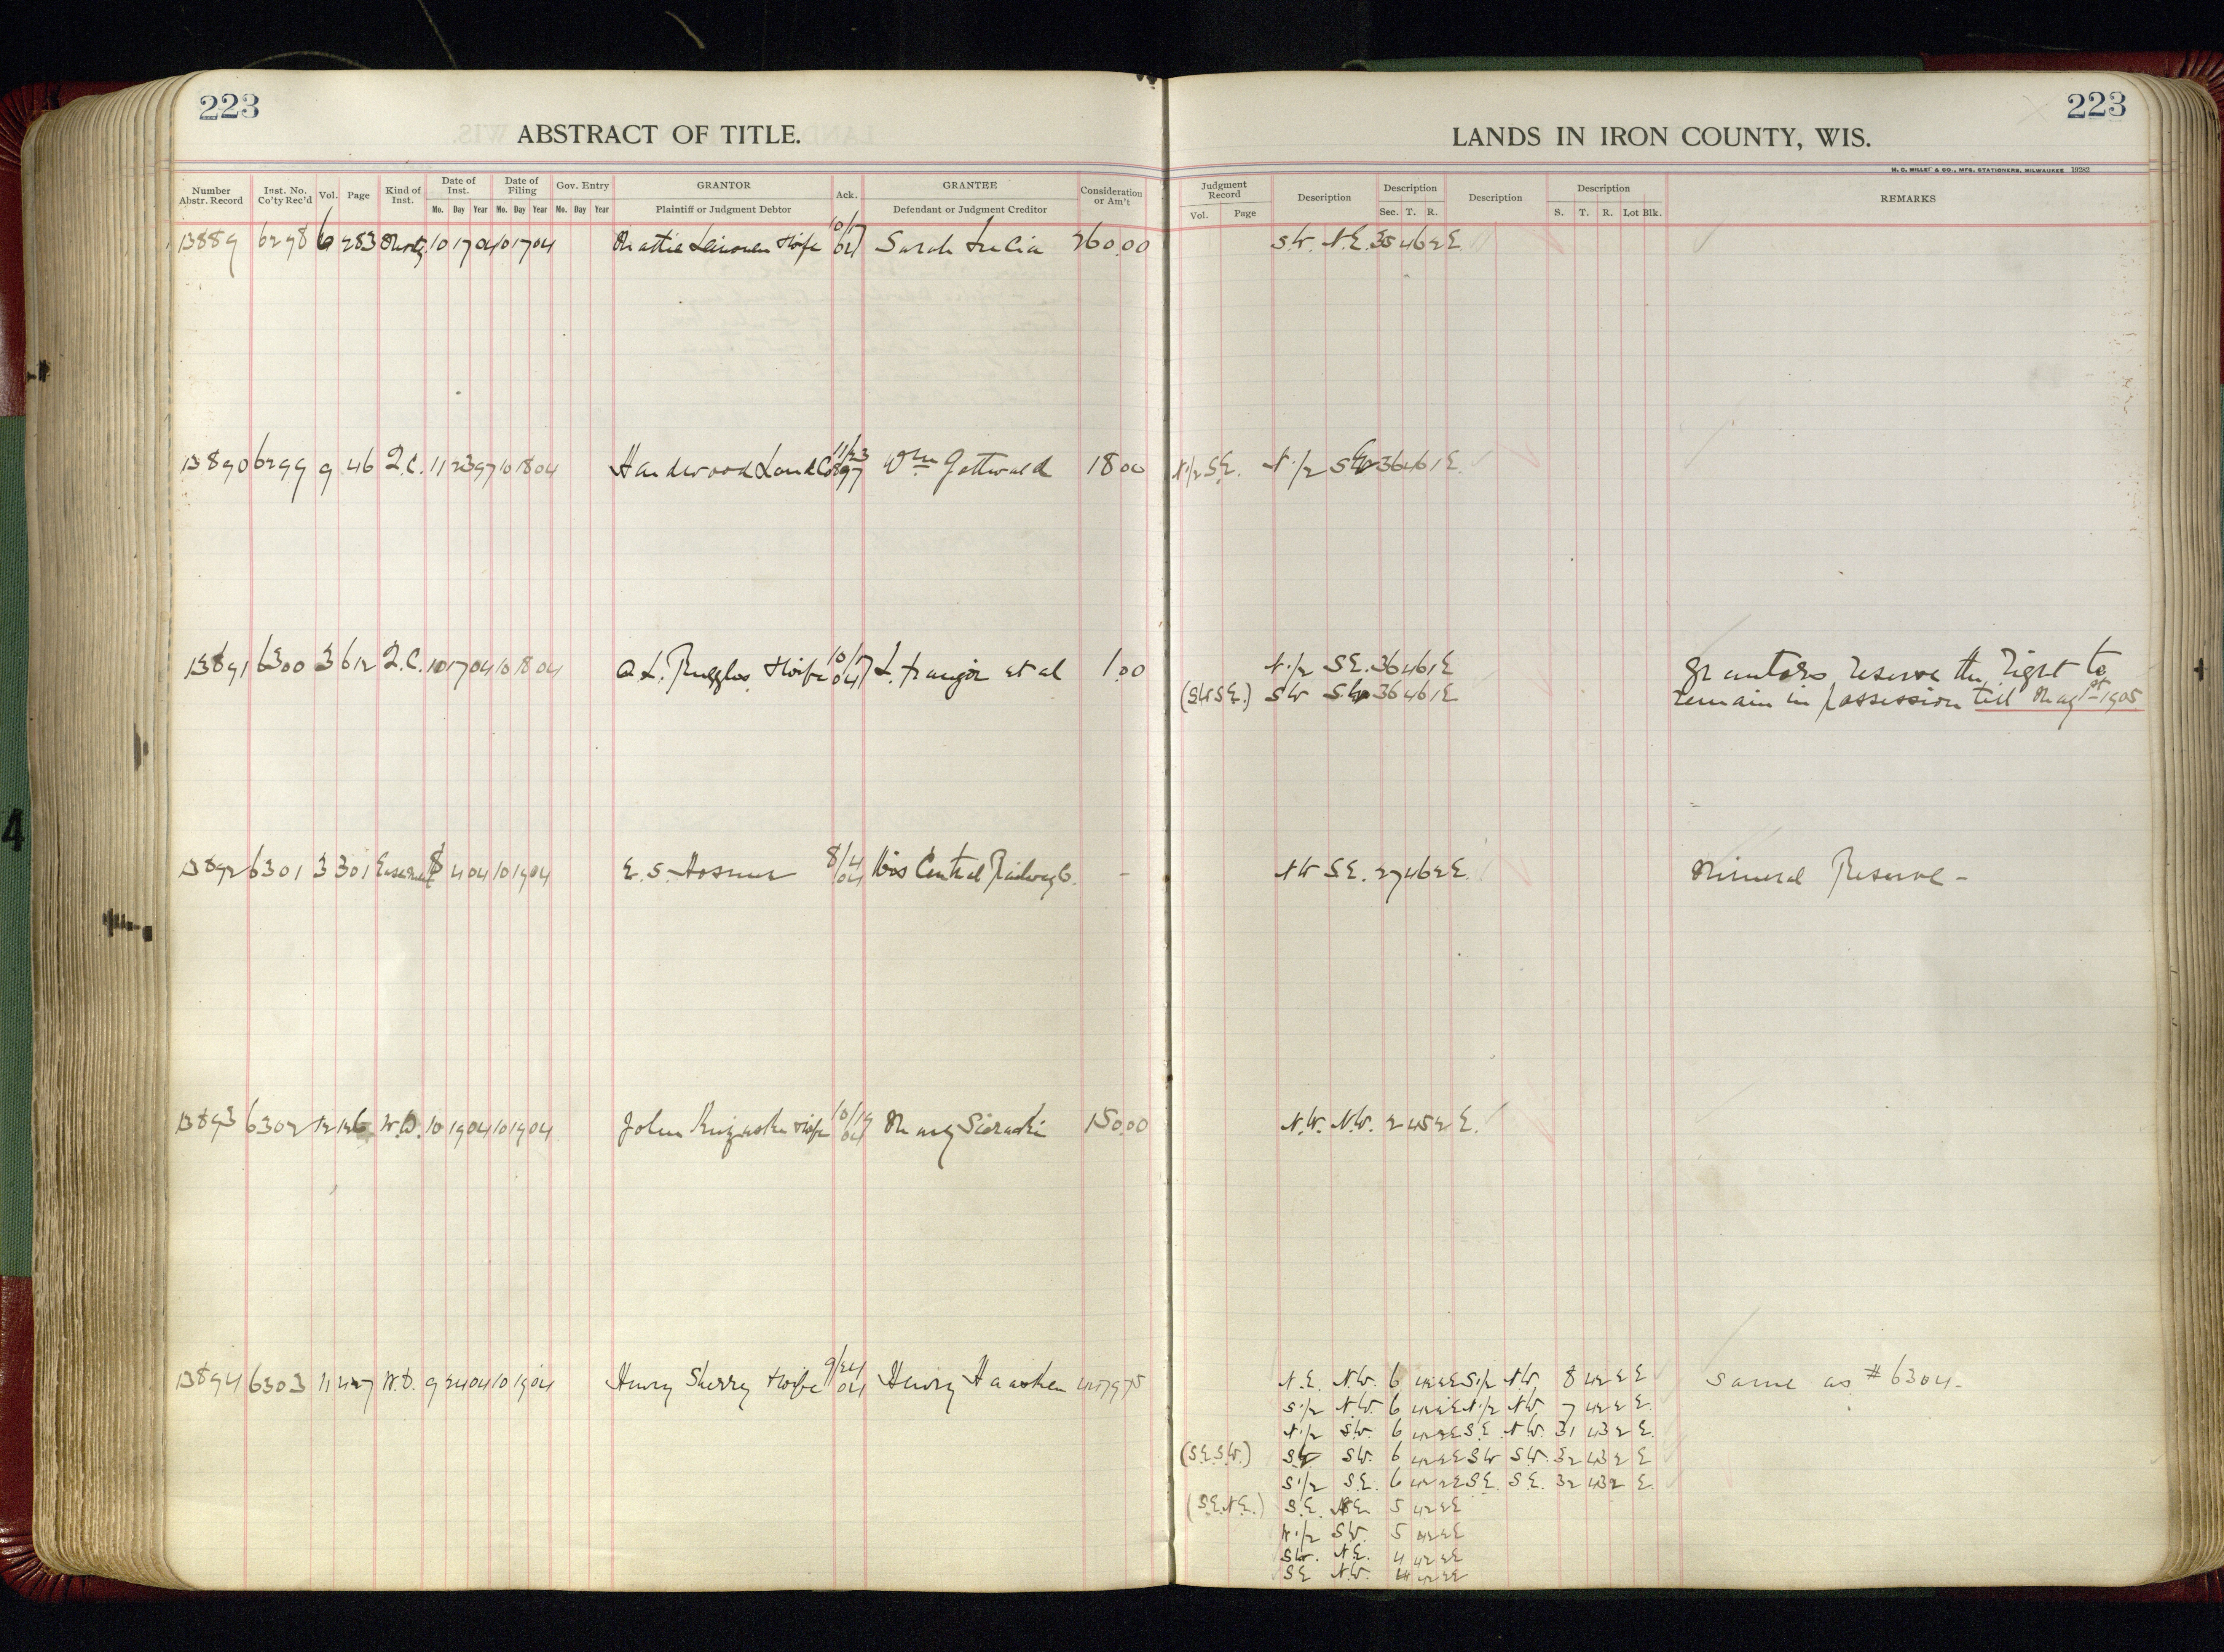 223
ABSTRACT OF TITLE.
Number Abstr. Record Inst. No. Co'ty Rec'd Vol. Page Kind of Inst. Date of Inst. Date of Filing Gov. Entry GRANTOR Ack. GRANTEE Consideration or Am't
Mo. Day Year Mo. Day Year Mo. Day Year Plaintiff or Judgment Debtor Defendant or Judgment Creditor
13889 6298 6 283 10 17 04 10 17 04 & wife 10/17 04 Sarah 260.00
13890 6299 9 46 Q.C. 11 23 97 10 18 04 Hardwood Land Co 11/23 897 Wm Gottwald 18 00
13891 6300 3 612 Q.C. 10 17 04 10 18 04 A. L. Ruggles & wife 10/17 04 L. et al 1.00
13892 6301 3 301 Easement 8 4 04 10 19 04 E. S. Hosmer 8/4 04 Wis Central Railway Co. -
13893 6302 12 W.D. 10 19 04 10 19 04 John & wife 10/19 04 Mary Sieracki 150.00
13894 6303 11 427 W.D. 9 24 04 10 19 04 Henry Sherry & wife 9/24 04 Henry
223
LANDS IN IRON COUNTY, WIS.
H. C. MILLER & CO., MFG. STATIONERS, MILWAUKEE 19282
Judgment Record Description Description Description Description REMARKS
Vol. Page Sec. T. R. S. T. R. Lot Blk.
S.W. N.E. 35 46 2 E.
N.1/2 S.E. N.1/2 S.W. 36 46 1 E.
N.1/2 S.E. 36 46 1 E Grantors reserve the right to
(SW S.E.) SW SW 36 46 1 E remain in possession till May 1st 1905
NW S.E. 27 46 2 E. Mineral Reserve -
N.W. N.W. 2 45 2 E.
N.E. N.W. 6 42 2 E S.1/2 N.W. 8 42 2 E same as #6304.
S.1/2 N.W. 6 42 2 E N.1/2 NW 7 42 2 E.
N.1/2 S.W. 6 42 2 E S.E. N.W. 31 43 2 E.
(S.E. S.W.) SW SW. 6 42 2 E SW S.W. 32 43 2 E
S.1/2 S.E. 6 42 2 E S.E. S.E. 32 43 2 E.
(S.E. N.E.) S.E. 5 42 2 E
N.1/2 SW. 5 42 2 E
SW. N.E. 4 42 2 E
SE N.W. 4 42 2 E